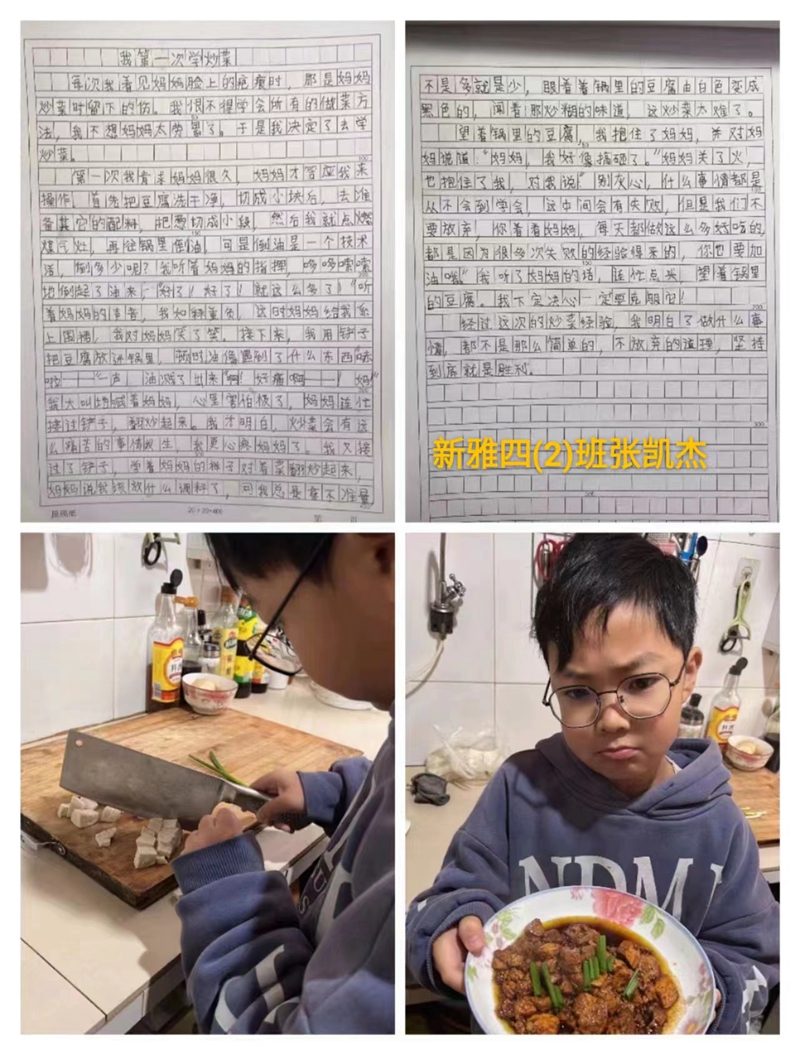 我第一次学炒菜
每次我看见妈妈脸上的疤痕时，那是妈妈
炒菜时留下的伤。我恨不得学会所有的做菜方
法，我不想妈妈太劳累了。于是我决定了去学
炒菜。
第一次我肯求妈妈很久，妈妈才答应我来
操作。首先把豆腐洗干净，切成小块后，去准
备其它的配料，把葱切成小段，然后我就点燃
煤气灶，再往锅里倒油，可是倒油是一个技术
活，倒多少呢？我听着妈妈的指挥，哆哆嗦嗦
地倒起了油来，“好了！好了！就这么多了！”听
着妈妈的声音，我如释重负，这时妈妈给我系
上围裙，我对妈妈笑了笑，接下来，我用铲子
把豆腐放进锅里，顿时油像遇到了什么东西“
啦——”一声，油溅了出来“啊！好痛啊——！妈”
我大叫
喊着妈妈，心里害怕极了，妈妈连忙
接过铲子，翻炒起来。我才明白，炒菜会有这
么痛苦的事情发生，我更心疼妈妈了。我又接
过了铲子，学着妈妈的样子对着菜翻炒起来，
妈妈说我该放什么调料了，可我总是拿不准量
20×20=400
第 页
不是多就是少，眼看着锅里的豆腐由白色变成
黑色的，闻着那炒糊的味道，这炒菜太难了。
望着锅里的豆腐，我抱住了妈妈，并对妈
妈说道：“妈妈，我好像搞砸了。”妈妈关了火，
也抱住了我，对我说：“别灰心，什么事情都是
从不会到学会，这中间会有失败，但是我们不
要放弃！你看着妈妈，每天都做这么多好吃的，
都是因为很多次失败的经验得来的，你也要加
油哦！”我听了妈妈的话，连忙点头，望着锅里
的豆腐。我下定决心一定要克服它！
经过这次的炒菜经验，我明白了做什么事
情，都不是那么简单的，不放弃的道理，坚持
到底就是胜利。
新雅四(2)班张凯杰